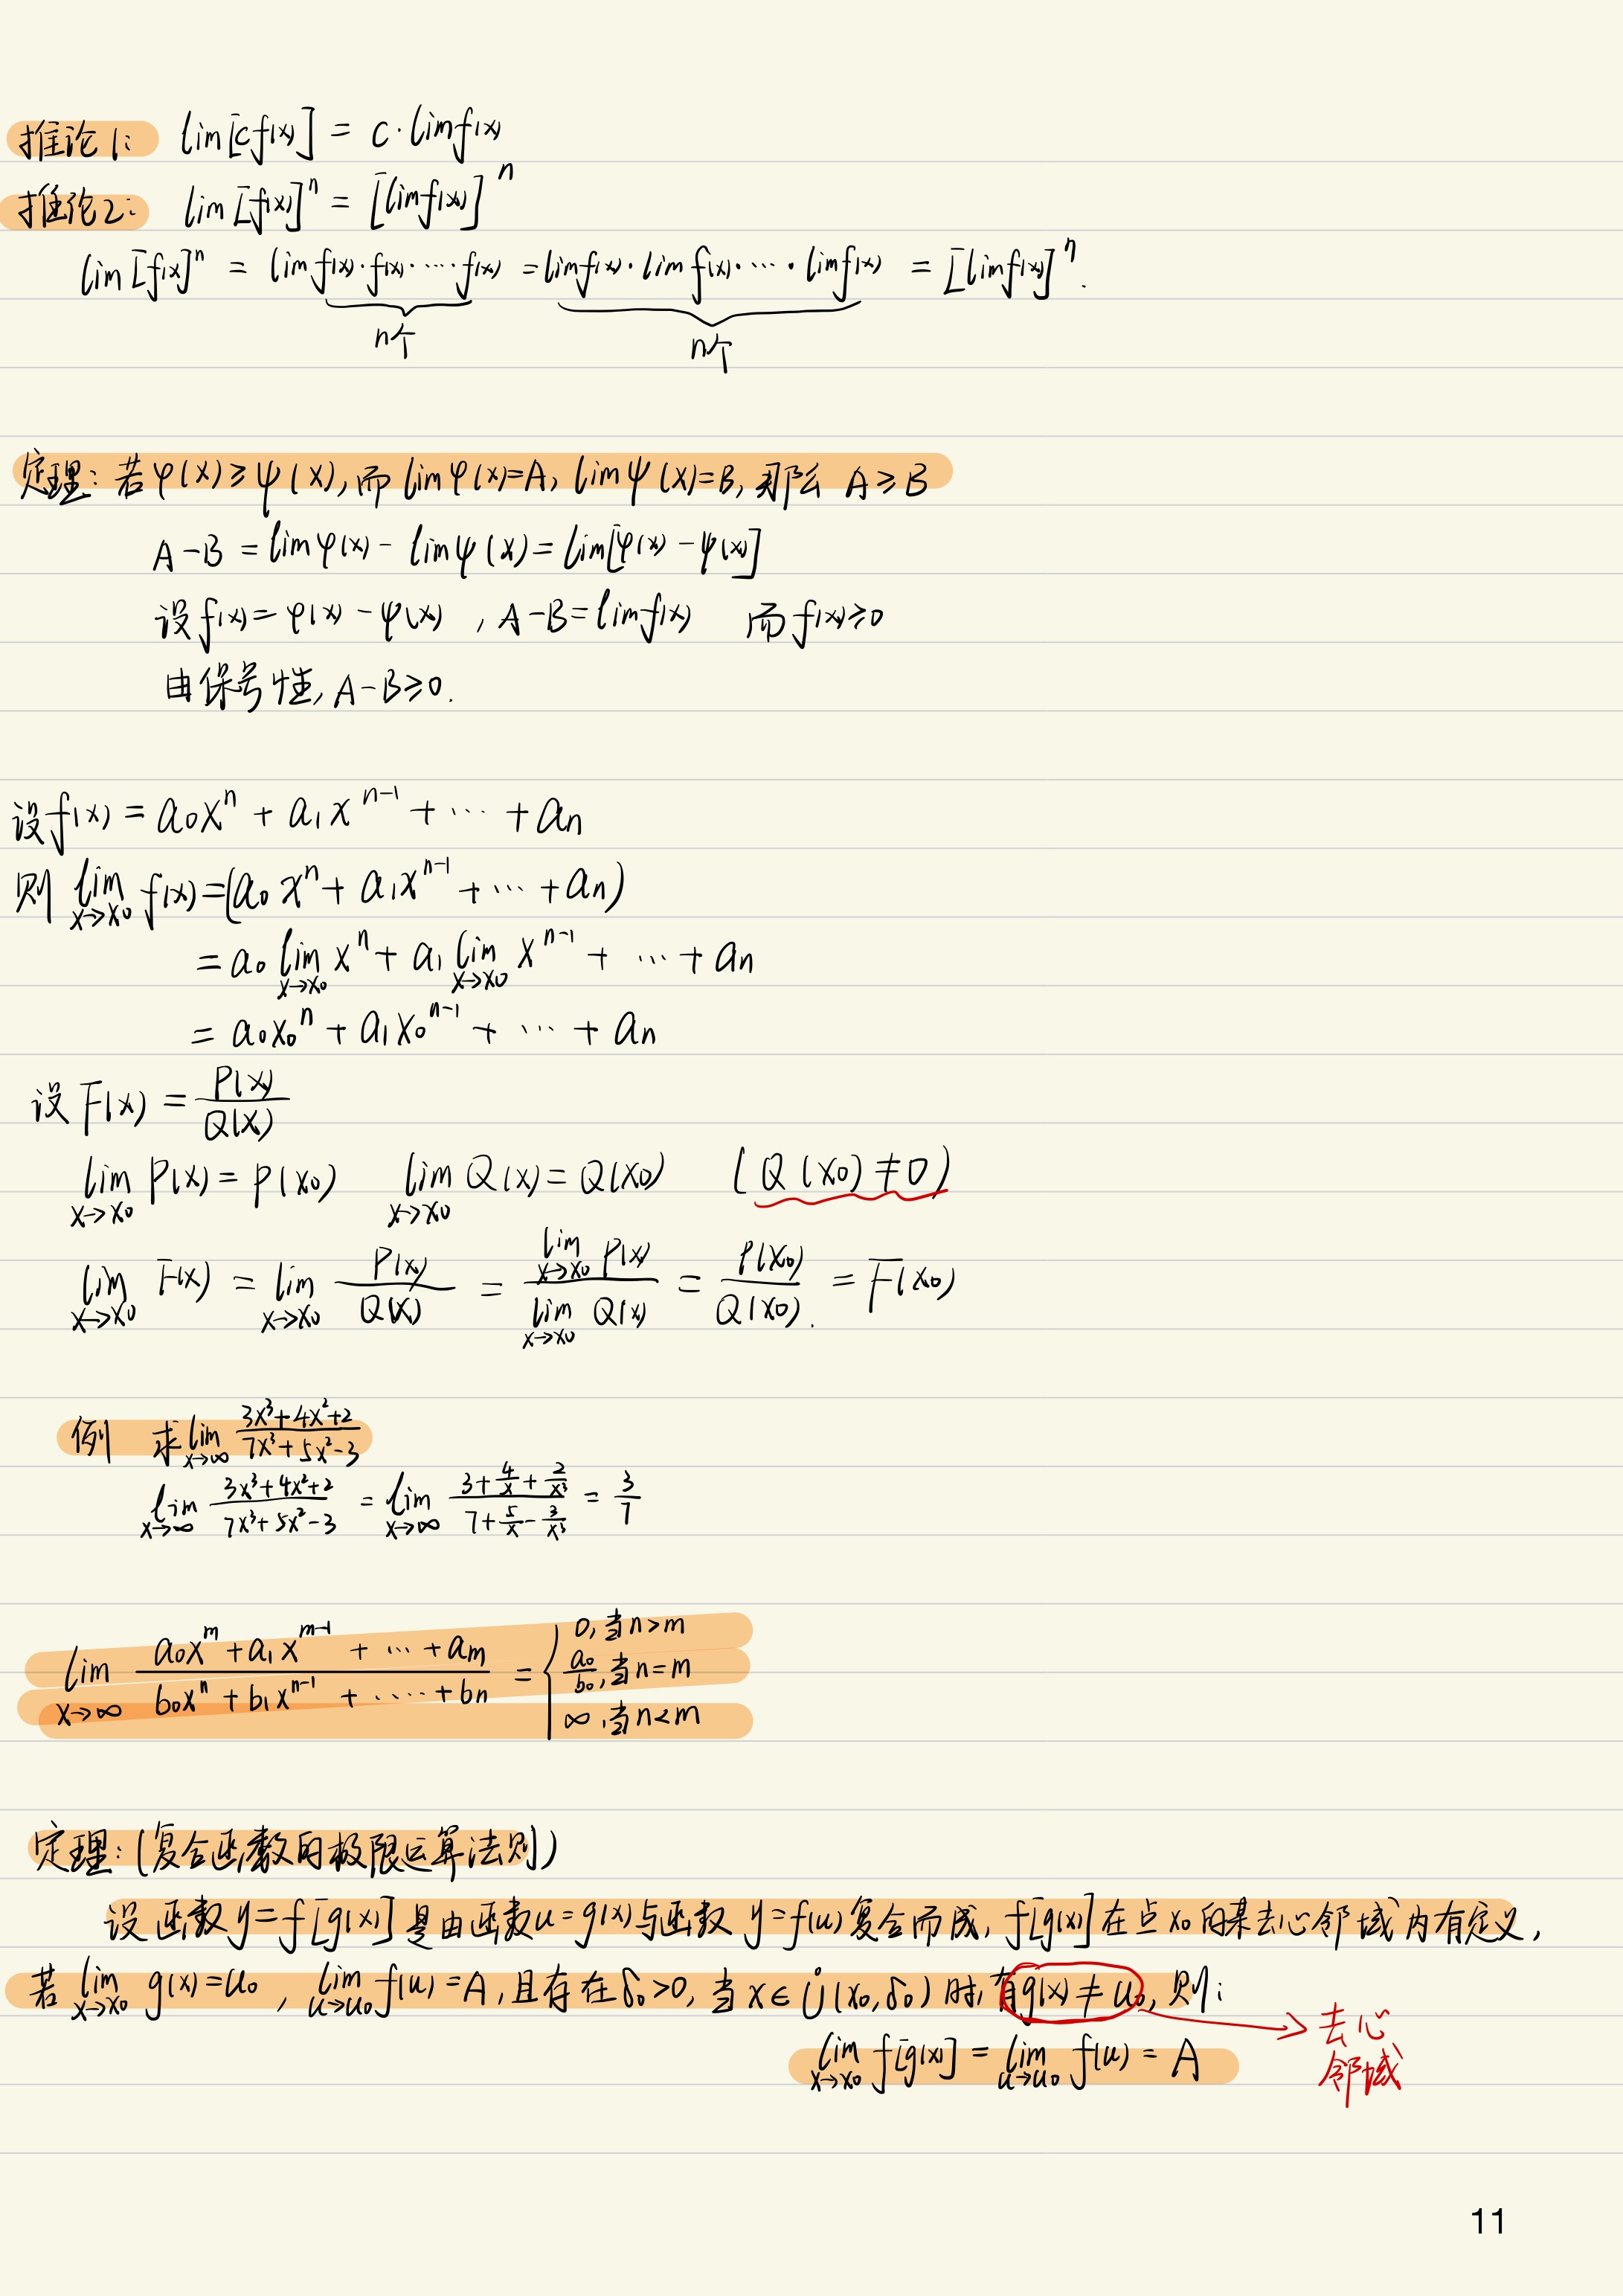 推论1: lim[cf(x)] = c·limf(x)
推论2: lim[f(x)]ⁿ = [limf(x)]ⁿ
lim[f(x)]ⁿ = lim f(x)·f(x)·…·f(x) = limf(x)·limf(x)·…·limf(x) = [limf(x)]ⁿ.
n个 n个
定理: 若φ(x)≥ψ(x), 而limφ(x)=A, limψ(x)=B, 那么 A≥B
A-B = limφ(x) - limψ(x) = lim[φ(x) - ψ(x)]
设f(x) = φ(x) - ψ(x), A-B = limf(x) 而f(x)≥0
由保号性, A-B≥0.
设f(x) = a₀xⁿ + a₁xⁿ⁻¹ + … + aₙ
则 lim_{x→x₀} f(x) = (a₀xⁿ + a₁xⁿ⁻¹ + … + aₙ)
= a₀ lim_{x→x₀} xⁿ + a₁ lim_{x→x₀} xⁿ⁻¹ + … + aₙ
= a₀x₀ⁿ + a₁x₀ⁿ⁻¹ + … + aₙ
设 F(x) = P(x)/Q(x)
lim_{x→x₀} P(x) = P(x₀) lim_{x→x₀} Q(x) = Q(x₀) (Q(x₀)≠0)
lim_{x→x₀} F(x) = lim_{x→x₀} P(x)/Q(x) = lim_{x→x₀} P(x) / lim_{x→x₀} Q(x) = P(x₀)/Q(x₀). = F(x₀)
例 求 lim_{x→∞} (3x³+4x²+2)/(7x³+5x²-3)
lim_{x→∞} (3x³+4x²+2)/(7x³+5x²-3) = lim_{x→∞} (3+4/x+2/x³)/(7+5/x-3/x³) = 3/7
lim_{x→∞} (a₀xᵐ+a₁xᵐ⁻¹+…+aₘ)/(b₀xⁿ+b₁xⁿ⁻¹+…+bₙ) = { 0, 当n>m
a₀/b₀, 当n=m
∞, 当n<m
定理: (复合函数的极限运算法则)
设函数y=f[g(x)]是由函数u=g(x)与函数 y=f(u)复合而成, f[g(x)]在点x₀的某去心邻域内有定义,
若 lim_{x→x₀} g(x)=u₀, lim_{u→u₀} f(u)=A, 且存在δ₀>0, 当x∈Ů(x₀,δ₀)时, 有g(x)≠u₀, 则:
去心
邻域
lim_{x→x₀} f[g(x)] = lim_{u→u₀} f(u) = A
11